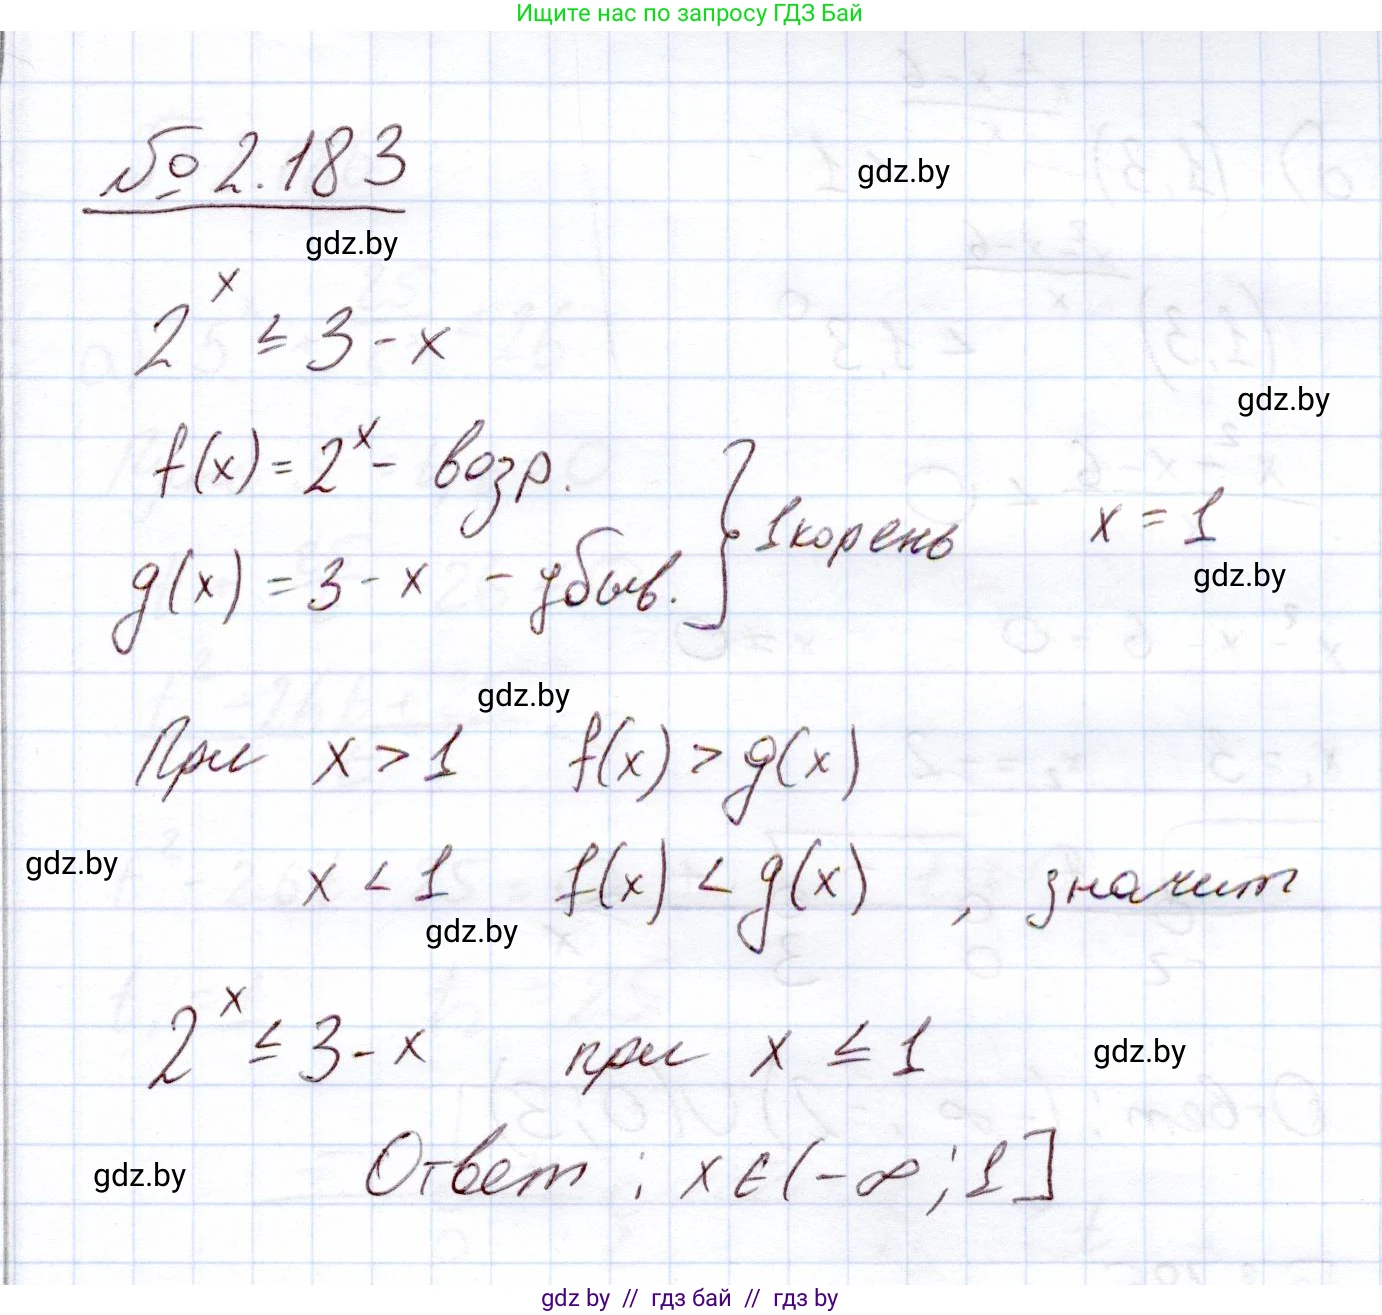 Ищите нас по запросу ГДЗ Бай
№ 2.183
gdz.by
gdz.by
2^x ≤ 3 - x
gdz.by
f(x) = 2^x - возр.
g(x) = 3 - x - убыв.
} 1 корень x = 1
gdz.by
gdz.by
При x > 1 f(x) > g(x)
gdz.by
x < 1 f(x) < g(x) , значит
gdz.by
2^x ≤ 3 - x при x ≤ 1
gdz.by
Ответ : x ∈ (-∞; 1]
gdz.by
gdz by // гдз бай // гдз by